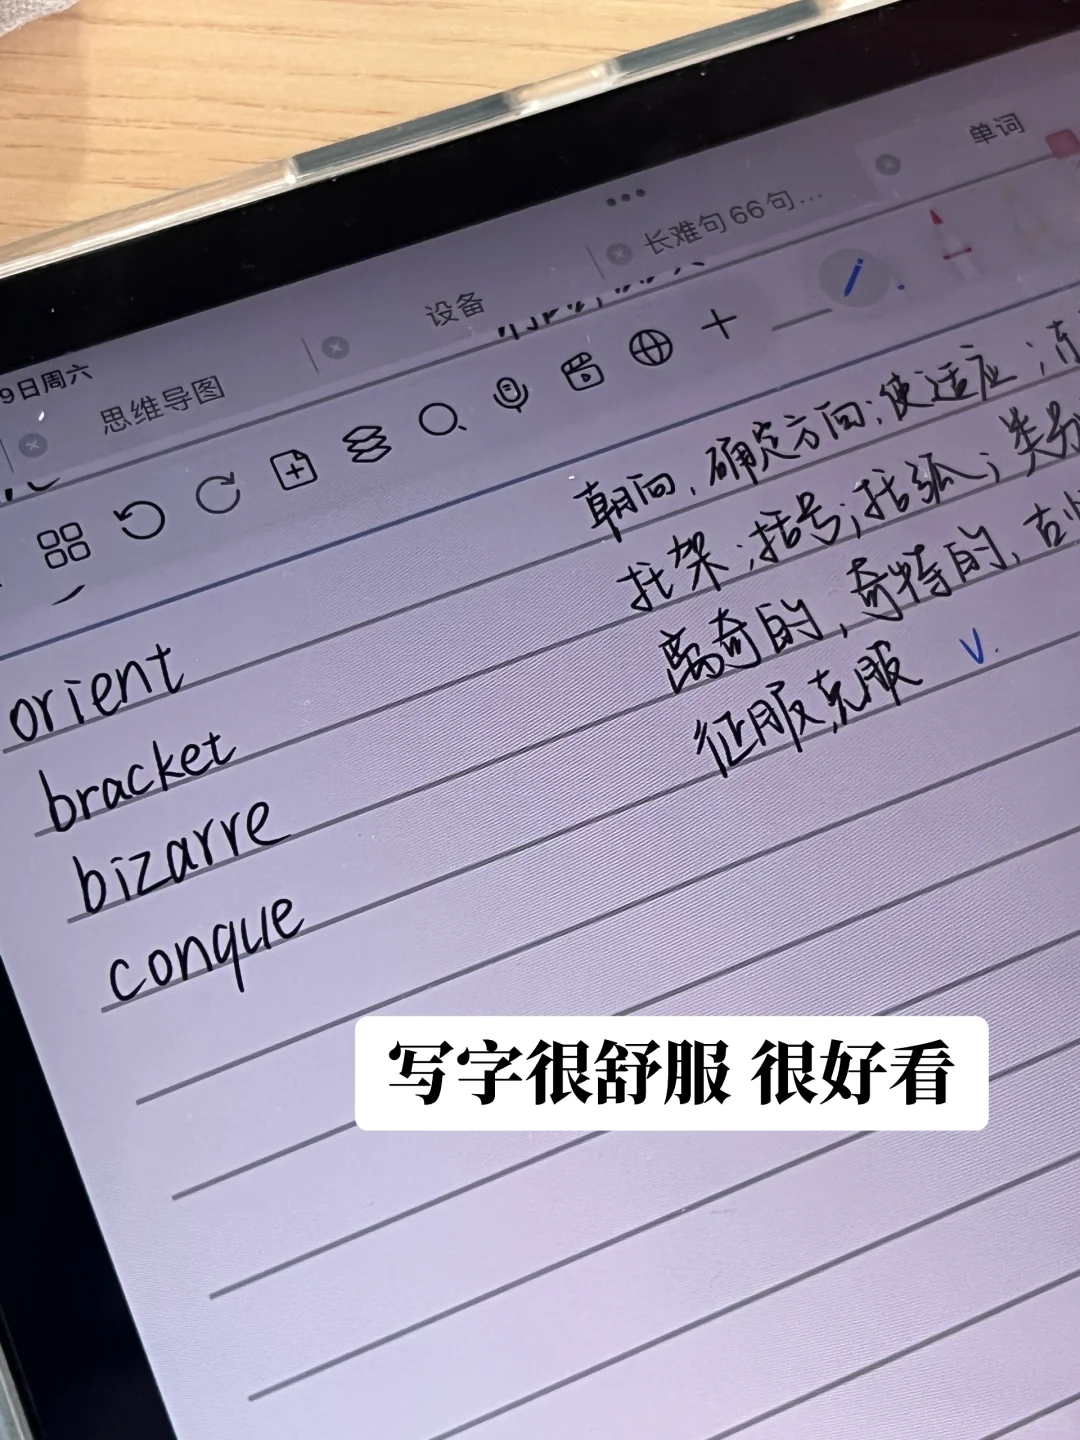 9日周六
思维导图
设备
长难句66句…
单词
orient 朝向,确定方向;使适应;
bracket 托架;括号;括弧;类别
bizarre 离奇的,奇特的,古
conque 征服克服 v.
写字很舒服 很好看